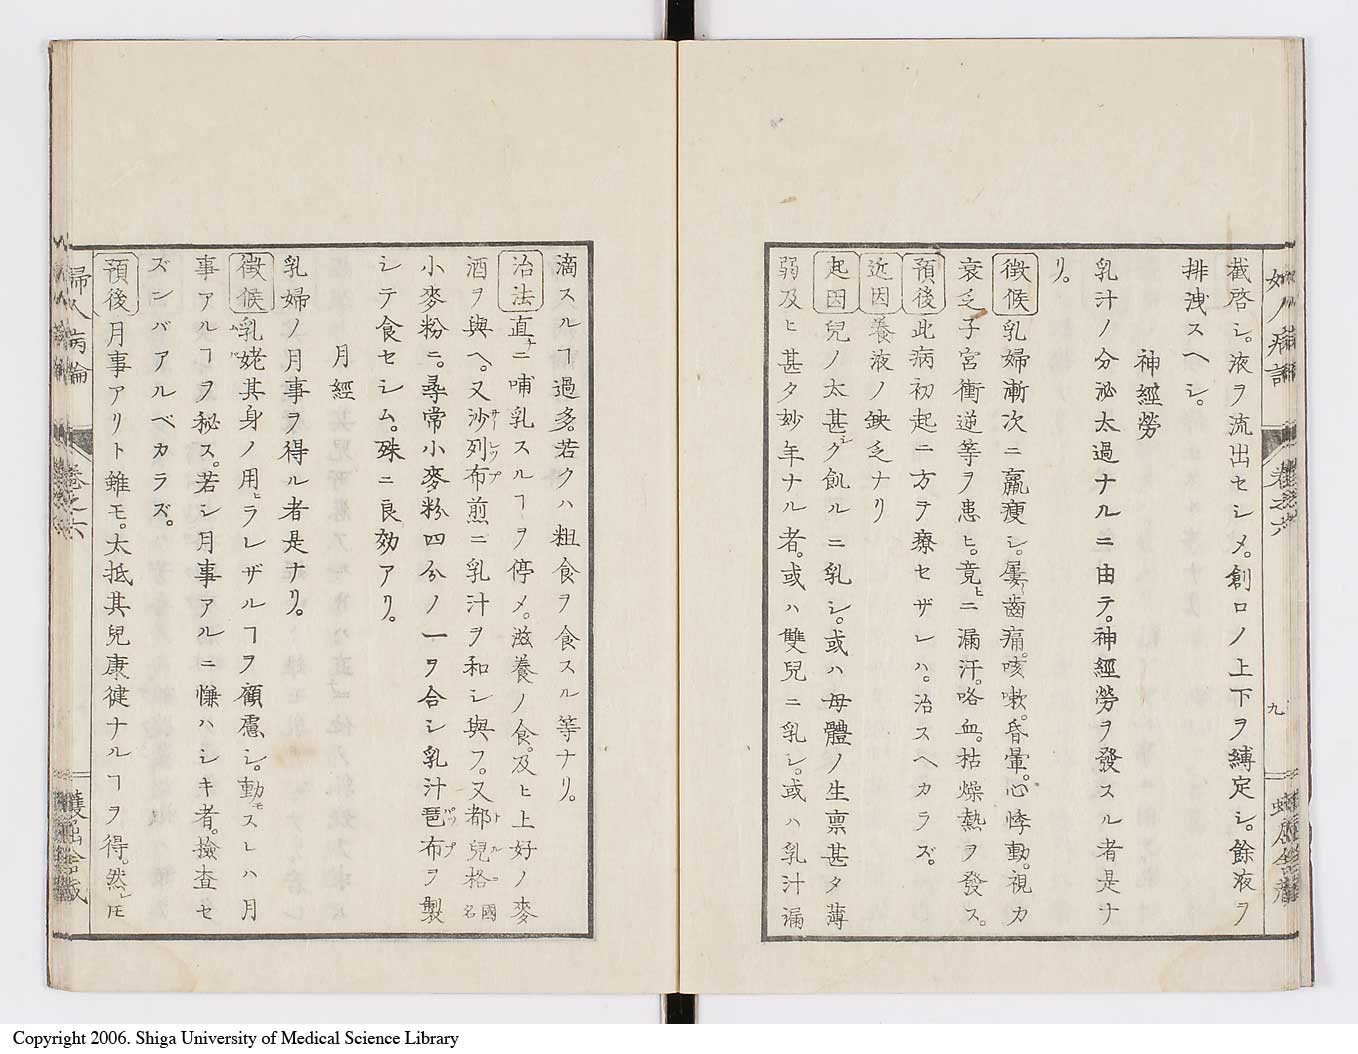 截啓シ。液ヲ流出セシメ。創口ノ上下ヲ縛定シ。餘液ヲ
排洩スヘシ。
神經勞
乳汁ノ分泌太過ナルニ由テ。神經勞ヲ發スル者是ナ
リ。
徴候乳婦漸次ニ羸瘦シ。屢齒痛。咳嗽。昏暈。心悸動。視力
衰乏子宮衝逆等ヲ患ヒ。竟ニ漏汗。咯血。枯燥熱ヲ發ス。
預後此病初起ニ方テ療セザレハ。治スヘカラズ。
近因養液ノ缺乏ナリ
起因兒ノ太甚シク飢ルニ乳シ。或ハ母體ノ生稟甚タ薄
弱及ヒ甚タ妙年ナル者。或ハ雙兒ニ乳シ。或ハ乳汁漏
卷之六
九
滴スルヿ過多。若クハ粗食ヲ食スル等ナリ。
治法直ニ哺乳スルヿヲ停メ。滋養ノ食。及ヒ上好ノ麥
酒ヲ與ヘ。又沙列布煎ニ乳汁ヲ和シ與フ。又都兒格國名
小麥粉ニ。尋常小麥粉四分ノ一ヲ合シ乳汁琶布ヲ製
シテ食セシム。殊ニ良効アリ。
月經
乳婦ノ月事ヲ得ル者是ナリ。
徴候乳姥其身ノ用ヒラレザルヿヲ顧慮シ。動モスレハ月
事アルヿヲ秘ス。若シ月事アルニ慊ハシキ者。撿査セ
ズンバアルベカラズ。
預後月事アリト雖モ。太抵其兒康健ナルヿヲ得。然レ𪜈
婦人病論
卷之六
Copyright 2006. Shiga University of Medical Science Library